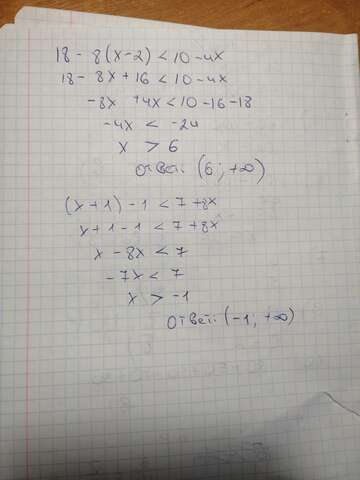 18 - 8(x-2) < 10 - 4x
18 - 8x + 16 < 10 - 4x
-8x +4x < 10 - 16 - 18
-4x < -24
x > 6
Ответ: (6; +∞)
(x+1) - 1 < 7 + 8x
x + 1 - 1 < 7 + 8x
x - 8x < 7
-7x < 7
x > -1
Ответ: (-1; +∞)